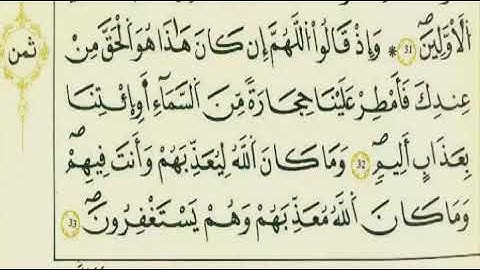 ثمن
اَ۬لَاوَّلِينَۖ 31 * وَإِذْ قَالُواْ اُ۬للَّهُمَّ إِن كَانَ هَٰذَا هُوَ اَ۬لْحَقَّ مِنْ
عِندِكَ فَأَمْطِرْ عَلَيْنَا حِجَارَةٗ مِّنَ اَ۬لسَّمَآءِ اَوِ اِ۪ئْتِنَا
بِعَذَابٍ اَلِيمٖۖ 32 وَمَا كَانَ اَ۬للَّهُ لِيُعَذِّبَهُمْ وَأَنتَ فِيهِمْۖ
وَمَا كَانَ اَ۬للَّهُ مُعَذِّبَهُمْ وَهُمْ يَسْتَغْفِرُونَۖ 33